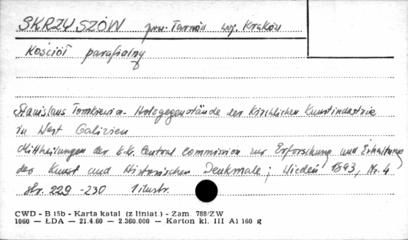 SKRZYSZÓW pow. Tarnów woj. Kraków
Kościół parafialny
Stanislaus Tomkiewicz - Holzgegenstände der kirchlichen Kunstindustrie
in West Galizien
Mittheilungen der k.k. Central Commission zur Erforschung und Erhaltung
der Kunst und Historischen Denkmale; Wiedeń 1893, Nr. 4
str. 229 - 230 1 ilustr.
CWD - B 15b - Karta katal (z liniat) - Zam. 788/ZW
1060 — ŁDA — 21.4.60 — 2.360.000 — Karton kl. III A1 160 g